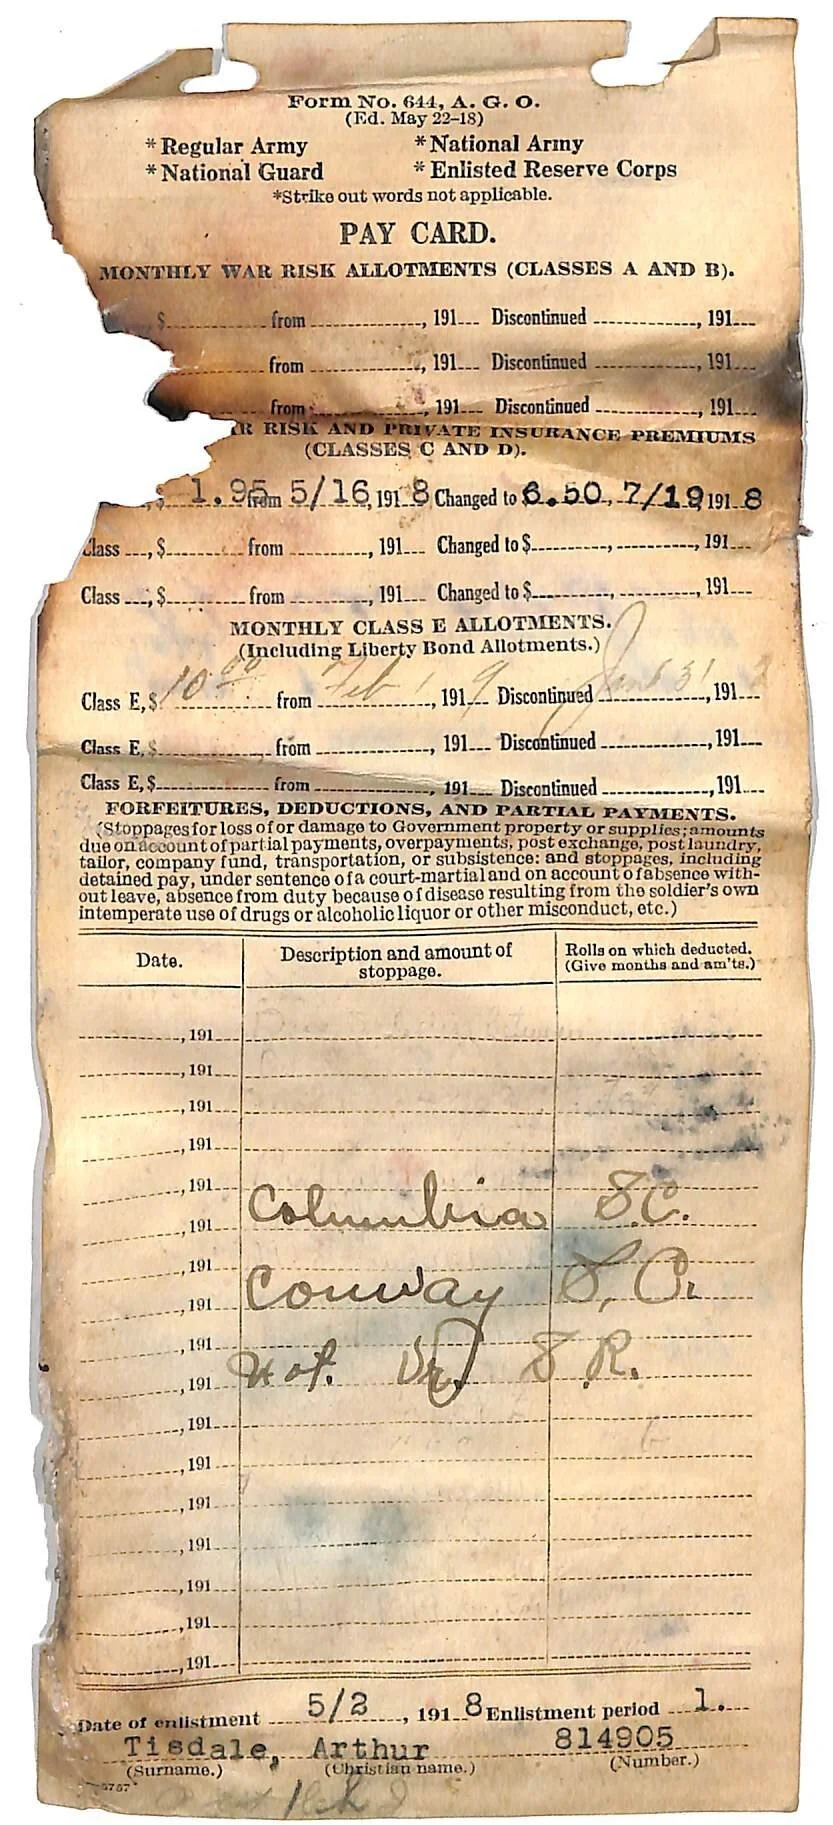 Form No. 644, A. G. O.
(Ed. May 22-18)
*Regular Army *National Army
*National Guard *Enlisted Reserve Corps
*Strike out words not applicable.
PAY CARD.
MONTHLY WAR RISK ALLOTMENTS (CLASSES A AND B).
$ from , 191 Discontinued , 191
from , 191 Discontinued , 191
from , 191 Discontinued , 191
R RISK AND PRIVATE INSURANCE PREMIUMS
(CLASSES C AND D).
, $ 1.95 from 5/16, 191 8 Changed to $ 6.50, 7/19 191 8
Class , $ from , 191 Changed to $ , , 191
Class , $ from , 191 Changed to $ , , 191
MONTHLY CLASS E ALLOTMENTS.
(Including Liberty Bond Allotments.)
Class E, $ 10 00 from Feb 1, 191 9 Discontinued 31, 191
Class E, $ , from , 191 Discontinued , 191
Class E, $ from , 191 Discontinued , 191
FORFEITURES, DEDUCTIONS, AND PARTIAL PAYMENTS.
(Stoppages for loss of or damage to Government property or supplies; amounts
due on account of partial payments, overpayments, post exchange, post laundry,
tailor, company fund, transportation, or subsistence: and stoppages, including
detained pay, under sentence of a court-martial and on account of absence with-
out leave, absence from duty because of disease resulting from the soldier's own
intemperate use of drugs or alcoholic liquor or other misconduct, etc.)
Date. Description and amount of stoppage. Rolls on which deducted. (Give months and am'ts.)
, 191
, 191
, 191
, 191
, 191
, 191 Columbia S.C.
, 191
, 191 Conway S, C.
, 191
, 191 S R.
, 191
, 191
, 191
, 191
, 191
, 191
, 191
Date of enlistment 5/2, 191 8 Enlistment period 1.
Tisdale, Arthur 814905
(Surname.) (Christian name.) (Number.)